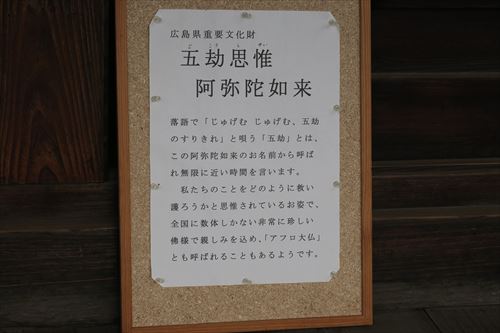 広島県重要文化財
五劫思惟
阿弥陀如来
落語で「じゅげむ じゅげむ、五劫
のすりきれ」と唄う「五劫」とは、
この阿弥陀如来のお名前から呼ば
れ無限に近い時間を言います。
私たちのことをどのように救い
護ろうかと思惟されているお姿で、
全国に数体しかない非常に珍しい
佛様で親しみを込め、「アフロ大仏」
とも呼ばれることもあるようです。